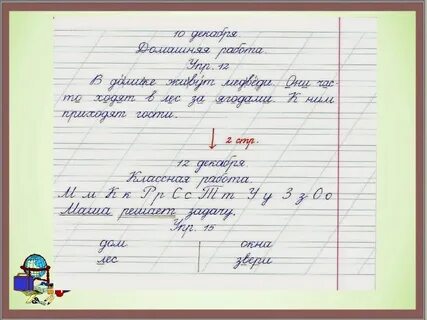 10 декабря.
Домашняя работа.
Упр. 12
В домике живут медведи. Они час-
то ходят в лес за ягодами. К ним
приходят гости.
2 стр.
12 декабря
Классная работа.
М м К к Р р С с Т т У у З з О о
Маша решает задачу.
Упр. 15
дом окна
лес звери